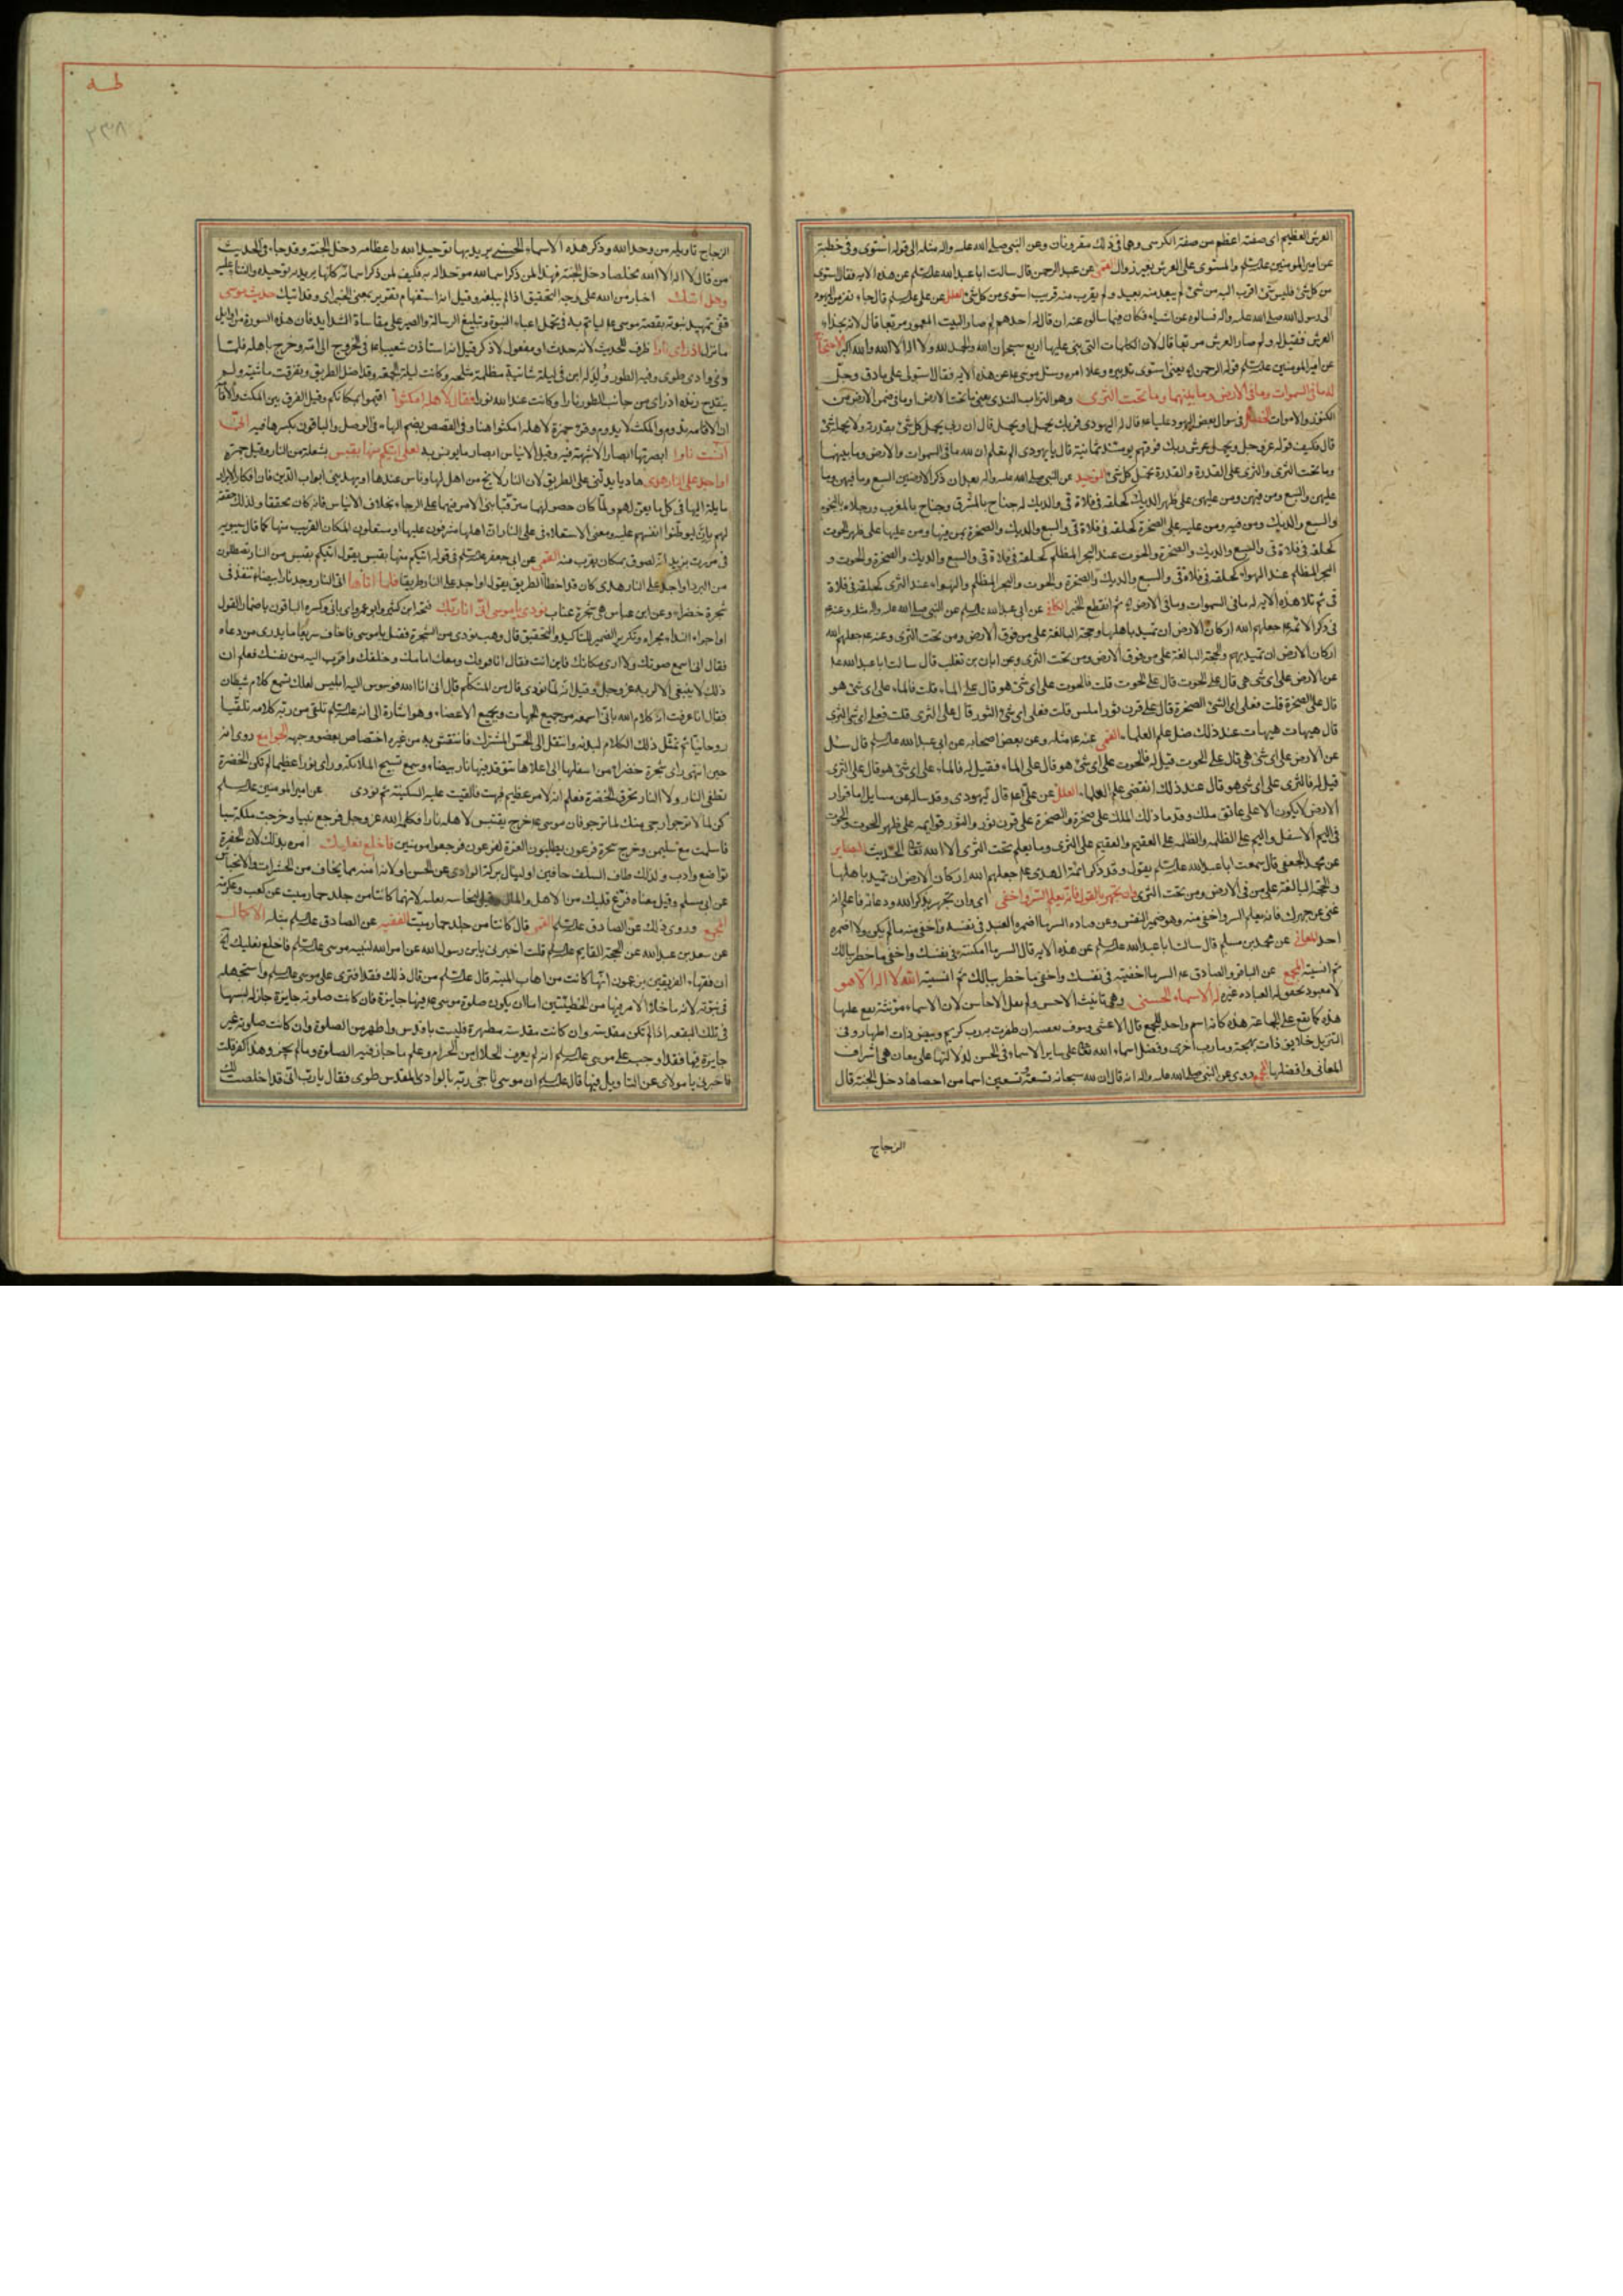 العرش العظيم اى صفته اعظم من صفة الكرسى وهما فى ذلك مقرونان وعن النبى صلى الله عليه واله مثله الى قوله استوى وفى خطبة
عن امير المومنين عليه السلم والمستوى على العرش بغير زوال القمى عن عبد الرحمن قال سالت ابا عبد الله عليه السلم عن هذه الاية فقال استوى
من كل شئ فليس شئ اقرب اليه من شئ لم يبعد منه بعيد ولم يقرب منه قريب استوى من كل شئ العلل عن على عليه السلم قال جاء نفر من اليهود
الى رسول الله صلى الله عليه واله فسالوه عن اشياء فكان فيما سالوه عنه ان قال له احدهم لم صار البيت المعمور مربعا قال لانه بحذاء
العرش فقيل له ولم صار العرش مربعا قال لان الكلمات التى بنى عليها اربع سبحان الله والحمد لله ولا اله الا الله والله اكبر الاحتجاج
عن امير المومنين عليه السلم قوله الرحمن يعنى استوى تدبيره وعلا امره وسئل موسى عن هذه الاية فقال استولى على ما دق وجل
له ما فى السموات وما فى الارض وما بينهما وما تحت الثرى وهو التراب الندى يعنى ما تحت الارض وما فى ضمن الارض من
الكنوز والاموات الخصال فى سوال بعض اليهود عليا ع قال له اليهودى فربك يحمل او يحمل قال ان ربى يحمل كل شئ بقدرته ولا يحمله شئ
قال فكيف قوله عز وجل ويحمل عرش ربك فوقهم يومئذ ثمانية قال يا يهودى الم تعلم ان لله ما فى السموات والارض وما بينهما
وما تحت الثرى والثرى على القدرة والقدرة تحمل كل شئ التوحيد عن النبى صلى الله عليه واله بعد ان ذكر الارضين السبع وما فيهن وما
عليهن والسبع ومن فيهن ومن عليهن على ظهر الديك كحلقة فى فلاة قى والديك له جناح بالمشرق وجناح بالمغرب ورجلاه بالتخوم
والسبع والديك ومن فيه ومن عليه على الصخرة كحلقة فى فلاة قى والسبع والديك والصخرة بمن فيها ومن عليها على ظهر الحوت
كحلقة فى فلاة قى والسبع والديك والصخرة والحوت عند البحر المظلم كحلقة فى فلاة قى والسبع والديك والصخرة والحوت و
البحر المظلم عند الهواء كحلقة فى فلاة قى والسبع والديك والصخرة والحوت والبحر المظلم والهواء عند الثرى كحلقة فى فلاة
قى ثم تلا هذه الاية له ما فى السموات وما فى الارض ثم انقطع الخبر الكافى عن ابى عبد الله عليه السلم عن النبى صلى الله عليه واله مثله وعنه ع
فى ذكر الائمة ع جعلهم الله اركان الارض ان تميد باهلها وحجته البالغة على من فوق الارض ومن تحت الثرى وعنه ع جعلهم الله
اركان الارض ان تميد بهم والحجة البالغة على من فوق الارض ومن تحت الثرى وعن ابان بن تغلب قال سالت ابا عبد الله ع
عن الارض على اى شئ هى قال على الحوت قلت فالحوت على اى شئ هو قال على الماء قلت فالماء على اى شئ هو
قال على الصخرة قلت فعلى اى شئ الصخرة قال على قرن ثور املس قلت فعلى اى شئ الثور قال على الثرى قلت فعلى اى شئ الثرى
قال هيهات هيهات عند ذلك ضل علم العلماء القمى عنه ع مثله وعن بعض اصحابه عن ابى عبد الله عليه السلم قال سئل
عن الارض على اى شئ هى قال على الحوت قيل له فالحوت على اى شئ هو قال على الماء فقيل له فالماء على اى شئ هو قال على الثرى
قيل له فالثرى على اى شئ هو قال عند ذلك انقضى علم العلماء العلل عن على ع قال ليهودى وقد ساله عن مسايل اما قرار
الارض لا يكون الا على عاتق ملك وقدما ذلك الملك على صخرة والصخرة على قرن ثور والثور قوايمه على ظهر الحوت والحوت
فى اليم الاسفل واليم على الظلمة والظلمة على العقيم والعقيم على الثرى وما يعلم تحت الثرى الا الله تعالى الحديث البصاير
عن محمد الجعفى قال سمعت ابا عبد الله عليه السلم يقول وقد ذكر ائمة الهدى ع جعلهم الله اركان الارض ان تميد باهلها
والحجة البالغة على من فى الارض ومن تحت الثرى وان تجهر بالقول فانه يعلم السر واخفى اى وان تجهر بذكر الله ودعائه فاعلم انه
غنى عن جهرك فانه يعلم السر واخفى منه وهو ضمير النفس
احد المعانى عن محمد بن مسلم قال سالت ابا عبد الله عليه السلم عن هذه الاية قال السر ما اكننته فى نفسك واخفى ما خطر ببالك
ثم انسيته المجمع عن الباقر والصادق ع السر ما اخفيته فى نفسك واخفى ما خطر ببالك ثم انسيته الله لا اله الا هو
لا معبود تحق له العبادة غيره له الاسماء الحسنى وهى تانيث الاحسن ولم يقل الاحاسن لان الاسماء مؤنثة يقع عليها
هذه كما يقع على الجماعة هذه كانه اسم واحد للجمع قال الاعشى وسوف
التنزيل حدايق ذات بهجة ومارب اخرى وفضل اسماء الله تعالى على ساير الاسماء فى الحسن لدلالتها على معان هى اشراف
المعانى وافضلها المجمع روى عن النبى صلى الله عليه واله انه قال ان لله سبحانه تسعة وتسعين اسما من احصاها دخل الجنة قال
الزجاج
طه
الزجاج تاويله من وحد الله وذكر هذه الاسماء الحسنى يريد بها توحيد الله واعظامه دخل الجنة وقد جاء فى الحديث
من قال لا اله الا الله مخلصا دخل الجنة فهذا لمن ذكر اسما لله موحدا له به فكيف لمن ذكر اسمائه كلها يريد به توحيده والثناء عليه
وهل اتيك اخبار من الله على وجه التحقيق اذ لم يبلغه وقيل انه استفهام تقرير بمعنى الخبر اى وقد اتيك حديث موسى
قفى تمهيد نبوته بقصة موسى ع لياتم به فى تحمل اعباء النبوة وتبليغ الرسالة والصبر على مقاساة الشدايد فان هذه السورة من اوايل
ما نزل اذ راى نارا ظرف للحديث لانه حدث او مفعول لاذكر قيل انه استاذن شعيبا ع فى الخروج الى امه وخرج باهله فلما
وفى وادى طوى وفيه الطور ولد له ابن فى ليلة شاتية مظلمة مثلجة وكانت ليلة الجمعة وقد اضل الطريق وتفرقت ماشيته ولم
ينقدح زنده اذ راى من جانب الطور نارا وكانت عند الله نورا فقال لاهله امكثوا اقيموا مكانكم وقيل الفرق بين المكث والاقامة
ان الاقامة تدوم والمكث لا يدوم وقرئ حمزة لاهله امكثوا هنا وفى القصص بضم الهاء فى الوصل والباقون بكسرها فيه انى
انست نارا ابصرتها ابصارا لا شبهة فيه وقيل الايناس ابصار ما يونس به لعلى اتيكم منها بقبس بشعلة من النار وقيل جمرة
او اجد على النار هدى هاديا يدلنى على الطريق لان النار لا تخ من اهل لها وناس عندها او يهدينى ابواب الدين فان افكار الابرار
مايلة اليها فى كل ما يعن لهم ولما كان حصولهما مترقبا بنى الامر فيهما على الرجاء بخلاف الايناس فانه كان محققا ولذلك حققه
لهم بان ليوطنوا انفسهم عليه ومعنى الاستعلاء فى على النار ان اهلها مشرفون عليها او مستعلون المكان القريب منها كما قال سيبويه
فى مررت بزيد انه لصوق بمكان يقرب منه القمى عن ابى جعفر عليه السلم فى قوله اتيكم منها بقبس يقول اتيكم بقبس من النار تصطلون
من البرد او اجد على النار هدى كان قد اخطا الطريق يقول او اجد على النار طريقا فلما اتاها اتى النار وجد نارا بيضاء تتقد فى
شجرة خضراء وعن ابن عباس هى شجرة عناب نودى يا موسى انى انا ربك فتحه ابن كثير وابو عمرو اى بانى وكسره الباقون باضمار القول
او اجراء النداء مجراه وتكرير الضمير للتاكيد والتحقيق قال وهب نودى من الشجرة فقيل يا موسى فاجاب سريعا ما يدرى من دعاه
فقال انى اسمع صوتك ولا ارى مكانك فاين انت فقال انا فوقك ومعك وامامك وخلفك واقرب اليه من نفسك فعلم ان
ذلك لا ينبغى الا لربه عز وجل وقيل انه لما نودى قال من المتكلم قال انى انا الله فوسوس اليه ابليس لعلك تسمع كلام شيطان
فقال انا عرفت انه كلام الله بانى اسمعه من جميع الجهات وبجميع الاعضاء وهو اشارة الى انه عليه السلم تلقى من ربه كلامه تلقيا
روحانيا ثم تمثل ذلك الكلام لبدنه وانتقل الى الحس المشترك فانتقش به من غير اختصاص بعضو وجهة الجوامع روى انه
حين انتهى راى شجرة خضراء من اسفلها الى اعلاها تتوقد فيها نار بيضاء وسمع تسبيح الملائكة وراى نورا عظيما لم تكن الخضرة
تطفى النار ولا النار تحرق الخضرة فعلم انه لامر عظيم فبهت فالقيت عليه السكينة ثم نودى عن امير المومنين عليه السلم
كن لما لا ترجو ارجى منك لما ترجو فان موسى ع خرج يقتبس لاهله نارا فكلمه الله عز وجل فرجع نبيا وخرجت ملكة سبا
فاسلمت مع سليمن وخرج سحرة فرعون يطلبون العزة لفرعون فرجعوا مومنين فاخلع نعليك امره بذلك لان الحفوة
تواضع وادب ولذلك طاف السلف حافين او لينال بركة الوادى عن الحسن او لانه امنه مما يخاف من الحشرات والانجاس
عن ابى مسلم وقيل معناه فرغ قلبك من الاهل والمال وقيل لنجاسة نعليه لانهما كانتا من جلد حمار ميت عن كعب وعكرمة
المجمع وروى ذلك عن الصادق عليه السلم القمى قال كانتا من جلد حمار ميت الفقيه عن الصادق عليه السلم مثله الاكمال
عن سعد بن عبد الله عن الحجة القايم عليه السلم قلت اخبرنى يابن رسول الله عن امر الله لنبيه موسى عليه السلم فاخلع نعليك
ان فقهاء الفريقين يزعمون انها كانت من اهاب الميتة قال عليه السلم من قال ذلك فقد افترى على موسى عليه السلم واستجهله
فى نبوته لانه ما خلا الامر فيها من خطيئتين اما ان يكون صلوة موسى ع فيها جايزة فان كانت صلوته جايزة جاز له لبسها
فى تلك البقعة اذا لم تكن مقدسة وان كانت مقدسة مطهرة فليست باقدس واطهر من الصلوة وان كانت صلوته غير
جايزة فيها فقد اوجب على موسى عليه السلم انه لم يعرف الحلال من الحرام وعلم ما جاز فيه الصلوة وما لم تجز وهذا كفر قلت
فاخبرنى يا مولاى عن التاويل فيها قال عليه السلم ان موسى ناجى ربه بالوادى المقدس طوى فقال يا رب انى قد اخلصت لك